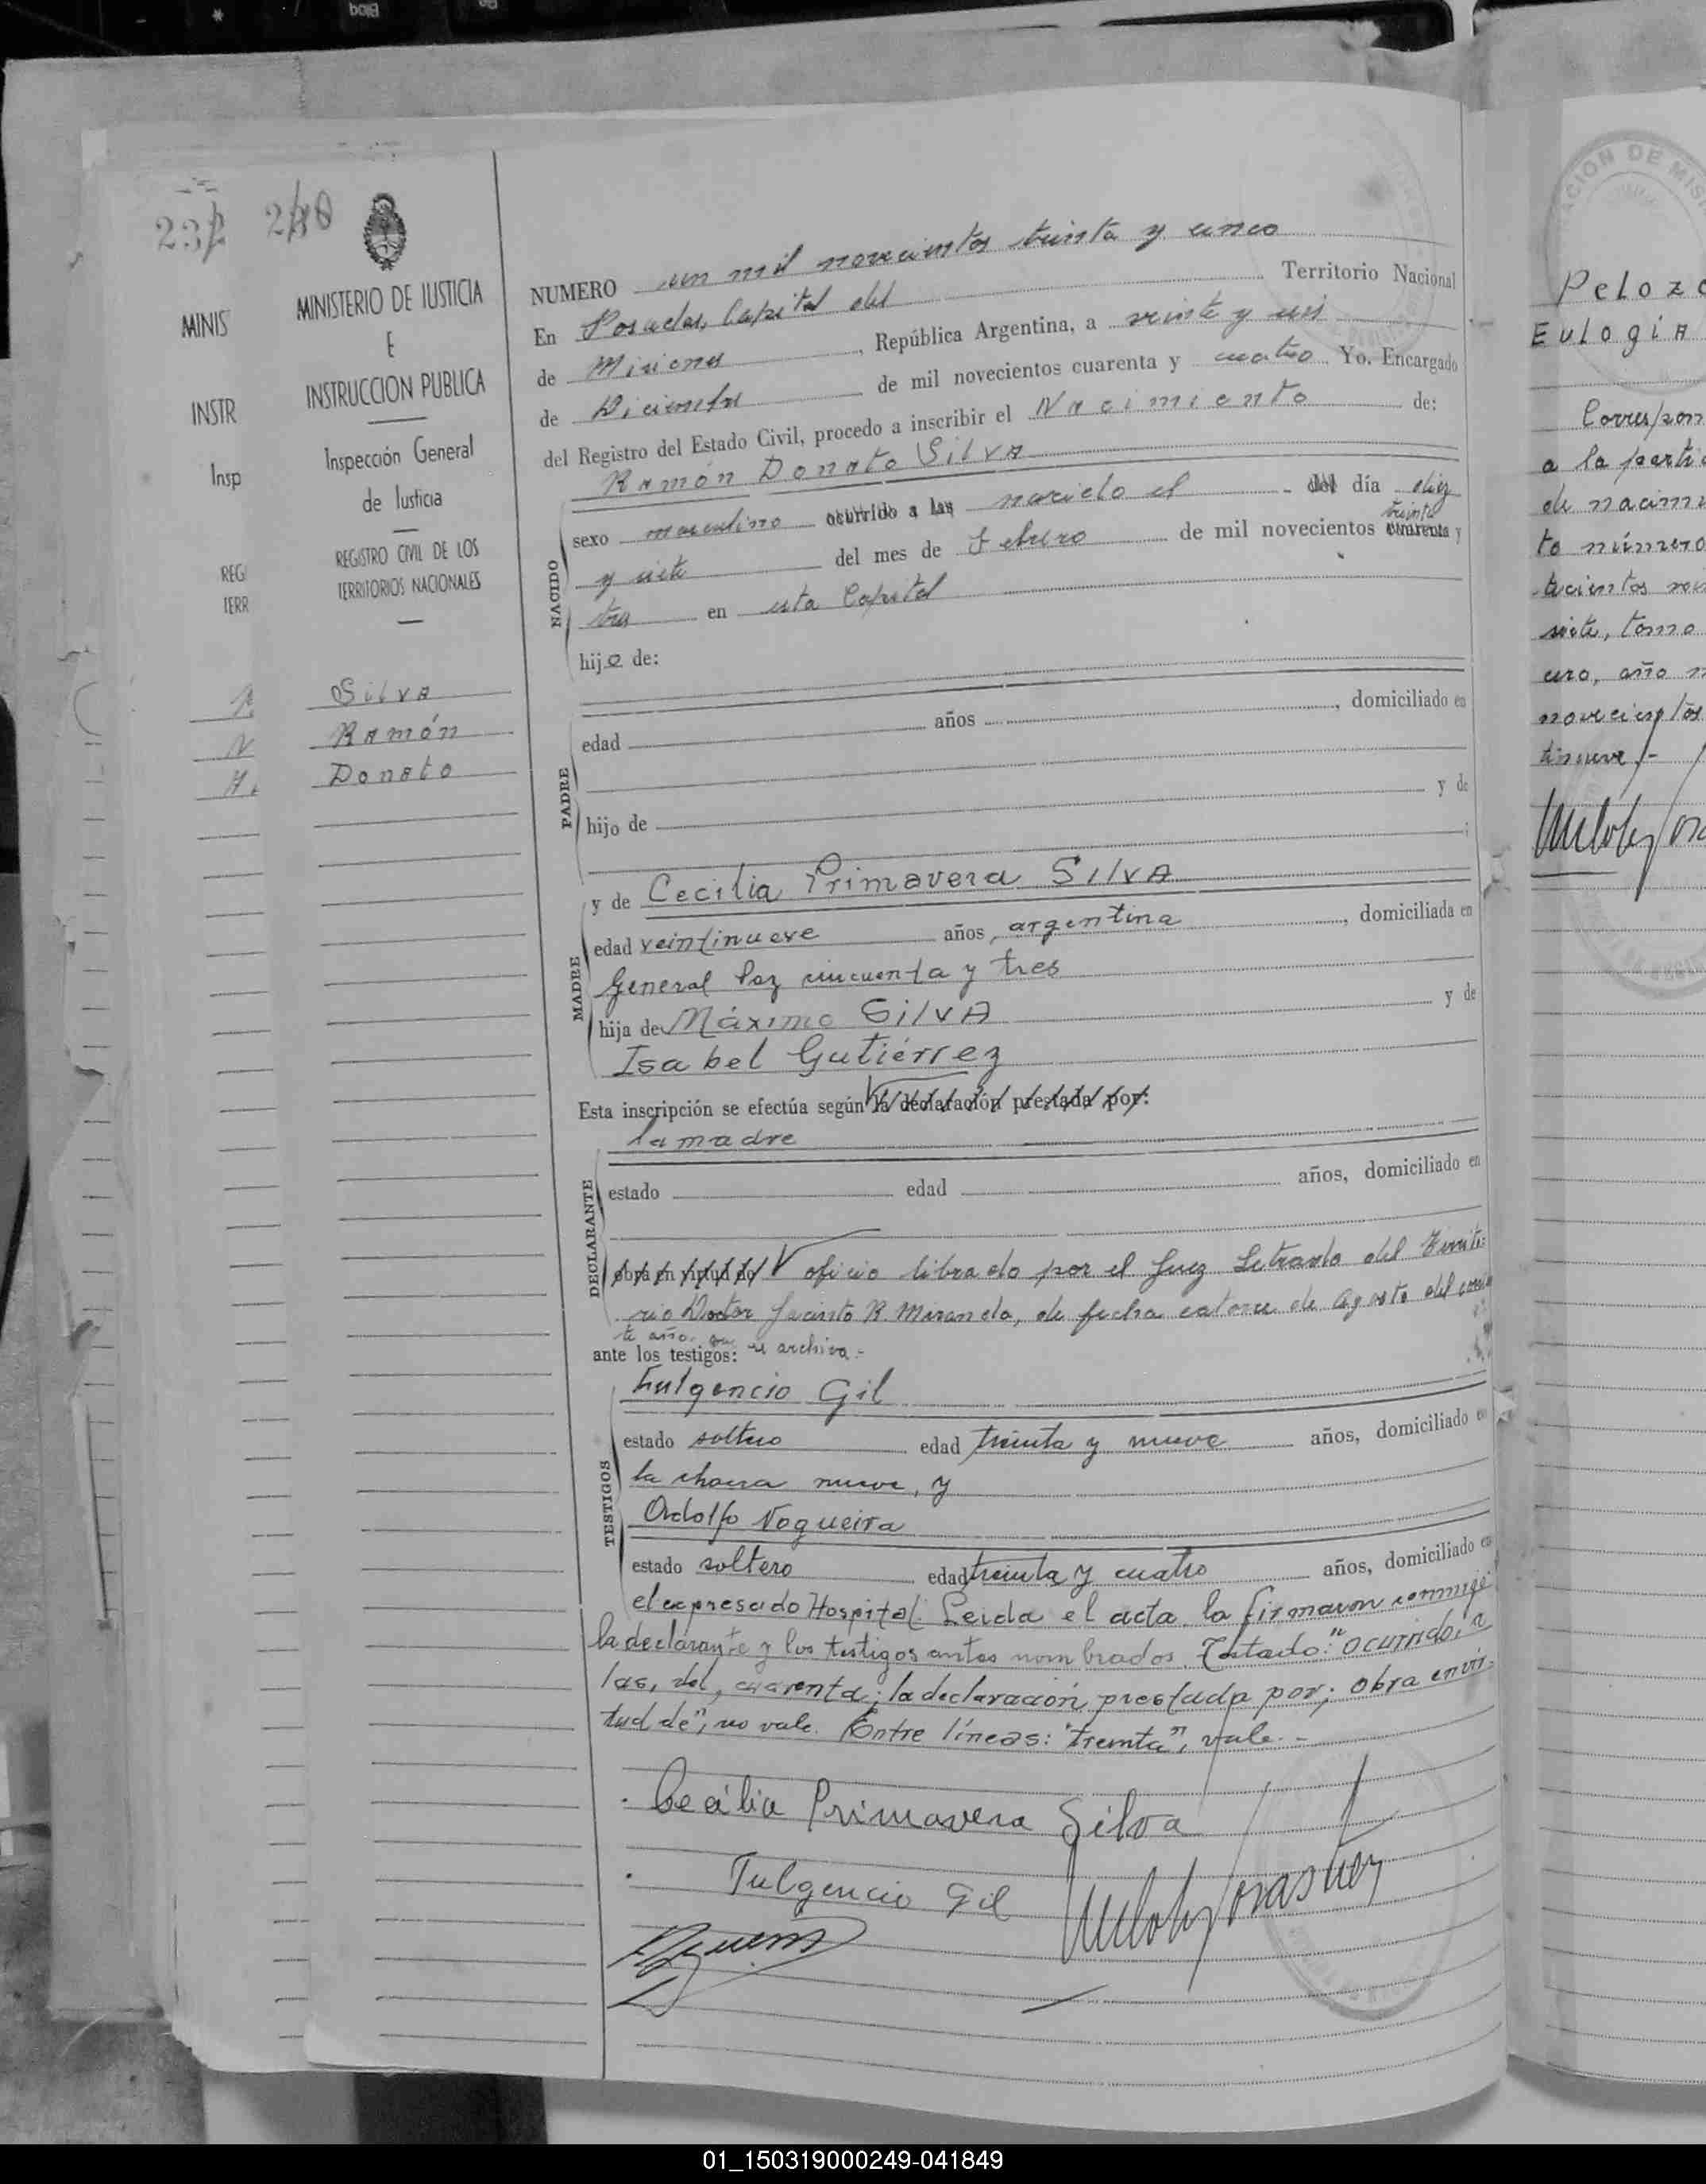 MINISTERIO DE JUSTICIA
E
INSTRUCCION PUBLICA
Inspección General
de Justicia
REGISTRO CIVIL DE LOS
TERRITORIOS NACIONALES
Silva
Ramón
Donato
MINIS
INSTR
Insp
REG
TERR
NUMERO un mil novecientos treinta y cinco
En Posadas, Capital del Territorio Nacional
de Misiones, República Argentina, a veinte y seis
de Diciembre de mil novecientos cuarenta y cuatro Yo, Encargado
del Registro del Estado Civil, procedo a inscribir el Nacimiento de:
Ramón Donato Silva
NACIDO
sexo masculino ocurrido a las nacido el del día diez
treinta
y siete del mes de Febrero de mil novecientos cuarenta y
tres en esta Capital
hijo de:
PADRE
edad años , domiciliado en
hijo de y de
MADRE
y de Cecilia Primavera Silva
edad veintinueve años, argentina , domiciliada en
General Paz cincuenta y tres
hija de Máximo Silva y de
Isabel Gutiérrez
Esta inscripción se efectúa según la declaración prestada por:
la madre
DECLARANTE
estado edad años, domiciliado en
obra en virtud de oficio librado por el Juez Letrado del Territo-
rio Doctor Jacinto R. Miranda, de fecha catorce de Agosto del corrien
te año, que se archiva.-
ante los testigos:
TESTIGOS
Fulgencio Gil
estado soltero edad treinta y nueve años, domiciliado en
la chacra nueve, y
Adolfo Nogueira
estado soltero edad treinta y cuatro años, domiciliado en
el expresado Hospital. Leida el acta, la firmaron conmigo
la declarante y los testigos antes nombrados. Testado: "ocurrido, a
las, del, cuarenta; la declaración prestada por; obra en vir-
tud de", no vale. Entre líneas: "treinta", vale.-
Cecilia Primavera Silva
Fulgencio Gil
Peloz
Eulogia
Correspon
a la parti
de nacim
to número
siete, tomo
uno, año
01_150319000249-041849